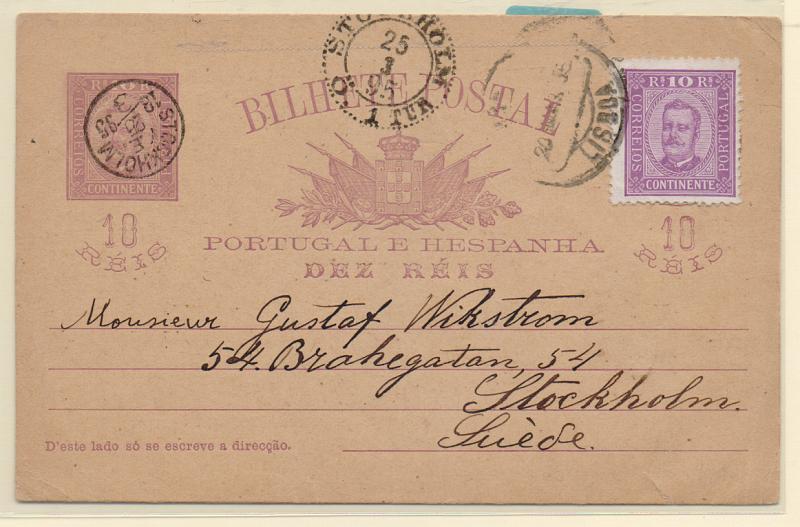 STOCKHOLM
25
3
95
1 TUR
LISBOA
BILHETE POSTAL
CORREIOS
CONTINENTE
STOCKHOLM
95
Rs 10 Rs
CORREIOS
PORTUGAL
CONTINENTE
10
RÉIS
10
RÉIS
PORTUGAL E HESPANHA
DEZ RÉIS
Monsieur Gustaf Wikstrom
54. Brahegatan, 54
Stockholm.
Suède.
D'este lado só se escreve a direcção.